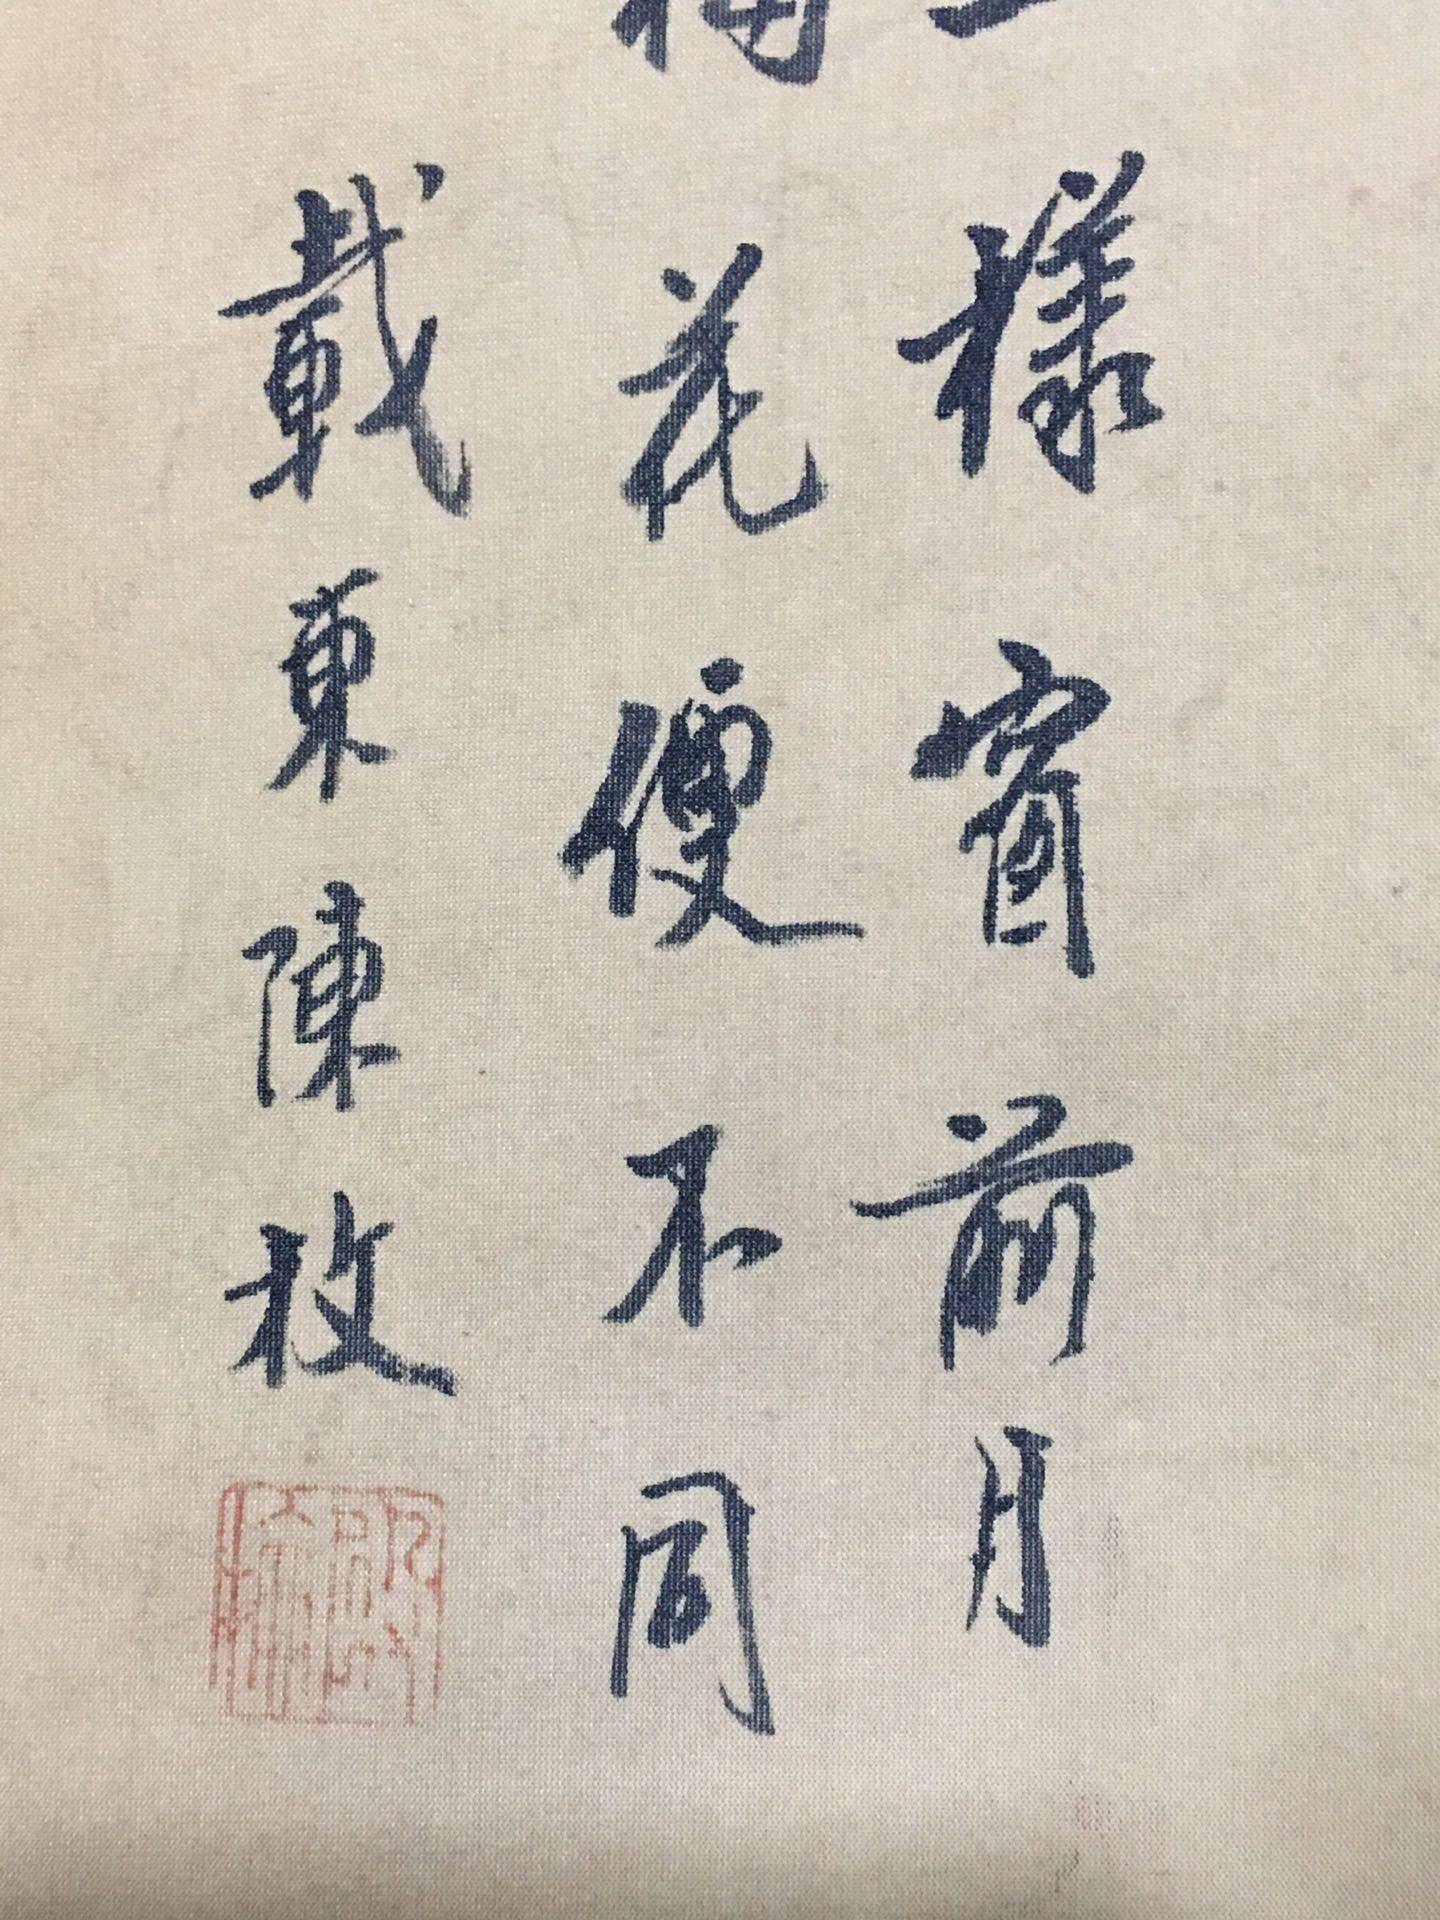 樣窗前月
花便不同
載東陳枚